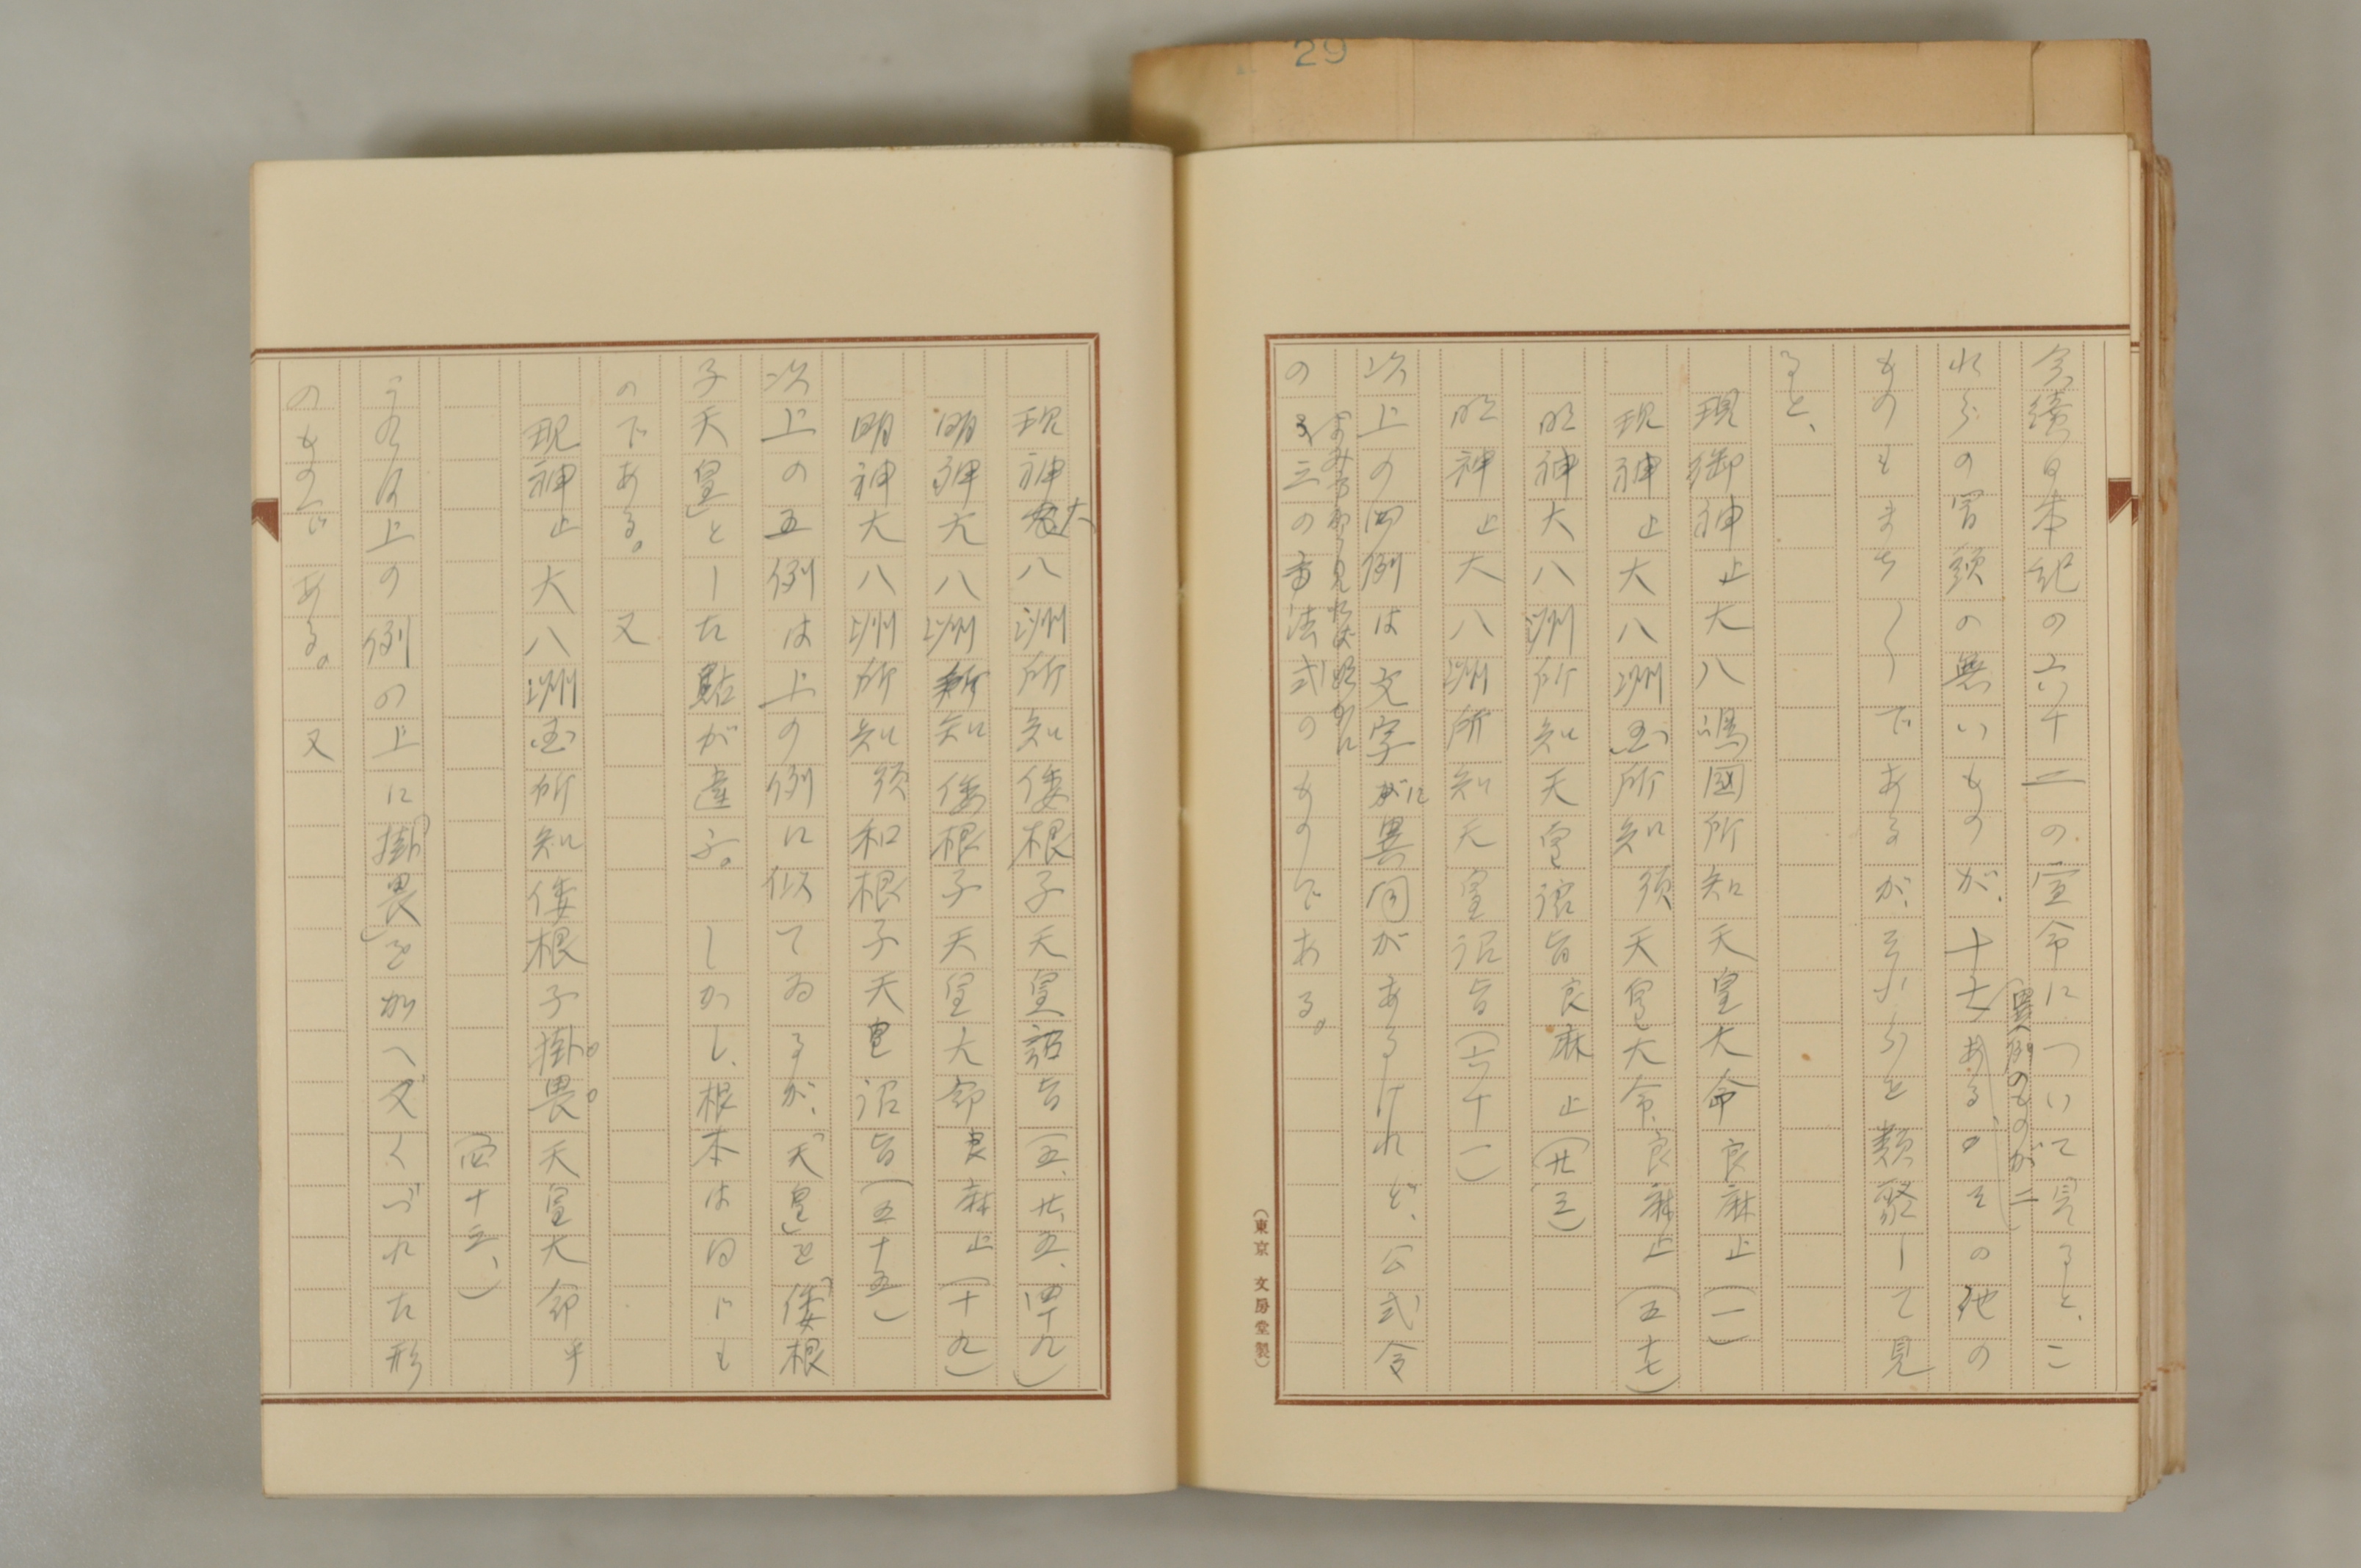 29
今續日本紀の六十二の宣命について見ると、こ
れらの冒頭の無いものが、十七ある、その他の
異例のものが二
ものもまち〱であるが、それらを類聚して見
ると、
現御神止大八嶋國所知天皇大命良麻止(一)
現神止大八洲国所知須天皇大命良麻止(五十七)
明神大八洲所知天皇詔旨良麻止(廿三)
明神止大八洲所知天皇詔旨(六十一)
次上の四例は文字に異同があるけれど、公式令
の三の書法式のものである。
(東京 文房堂製)
現神大八洲所知倭根子天皇詔旨(五、廿五、四十九)
明神大八洲所知倭根子天皇大命良麻止(十九)
明神大八洲所知須和根子天皇詔旨(五十五)
次上の五例は上の例に似てゐるが、「天皇」を「倭根
子天皇」とした點が違ふ。しかし、根本は同じも
のである。又
現神止大八洲国所知倭根子掛畏天皇大命乎
(四十三、)
うるは上の例の上に「掛畏」を加へ又くづれた形
のものである。又